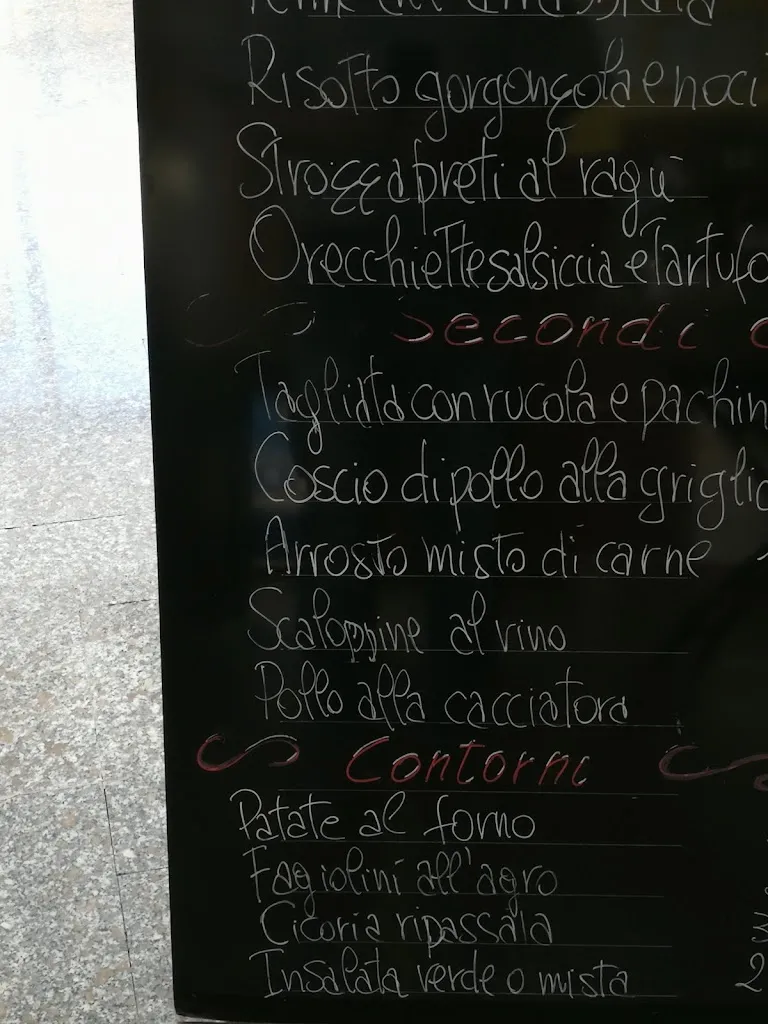 Risotto gorgonzola e noci
Strozzapreti al ragù
Orecchiette salsiccia e Tartufo
Secondi
Tagliata con rucola e pachin
Coscio di pollo alla griglia
Arrosto misto di carne
Scaloppine al vino
Pollo alla cacciatora
Contorni
Patate al forno
Fagiolini all'agro
Cicoria ripassata
Insalata verde o mista 2